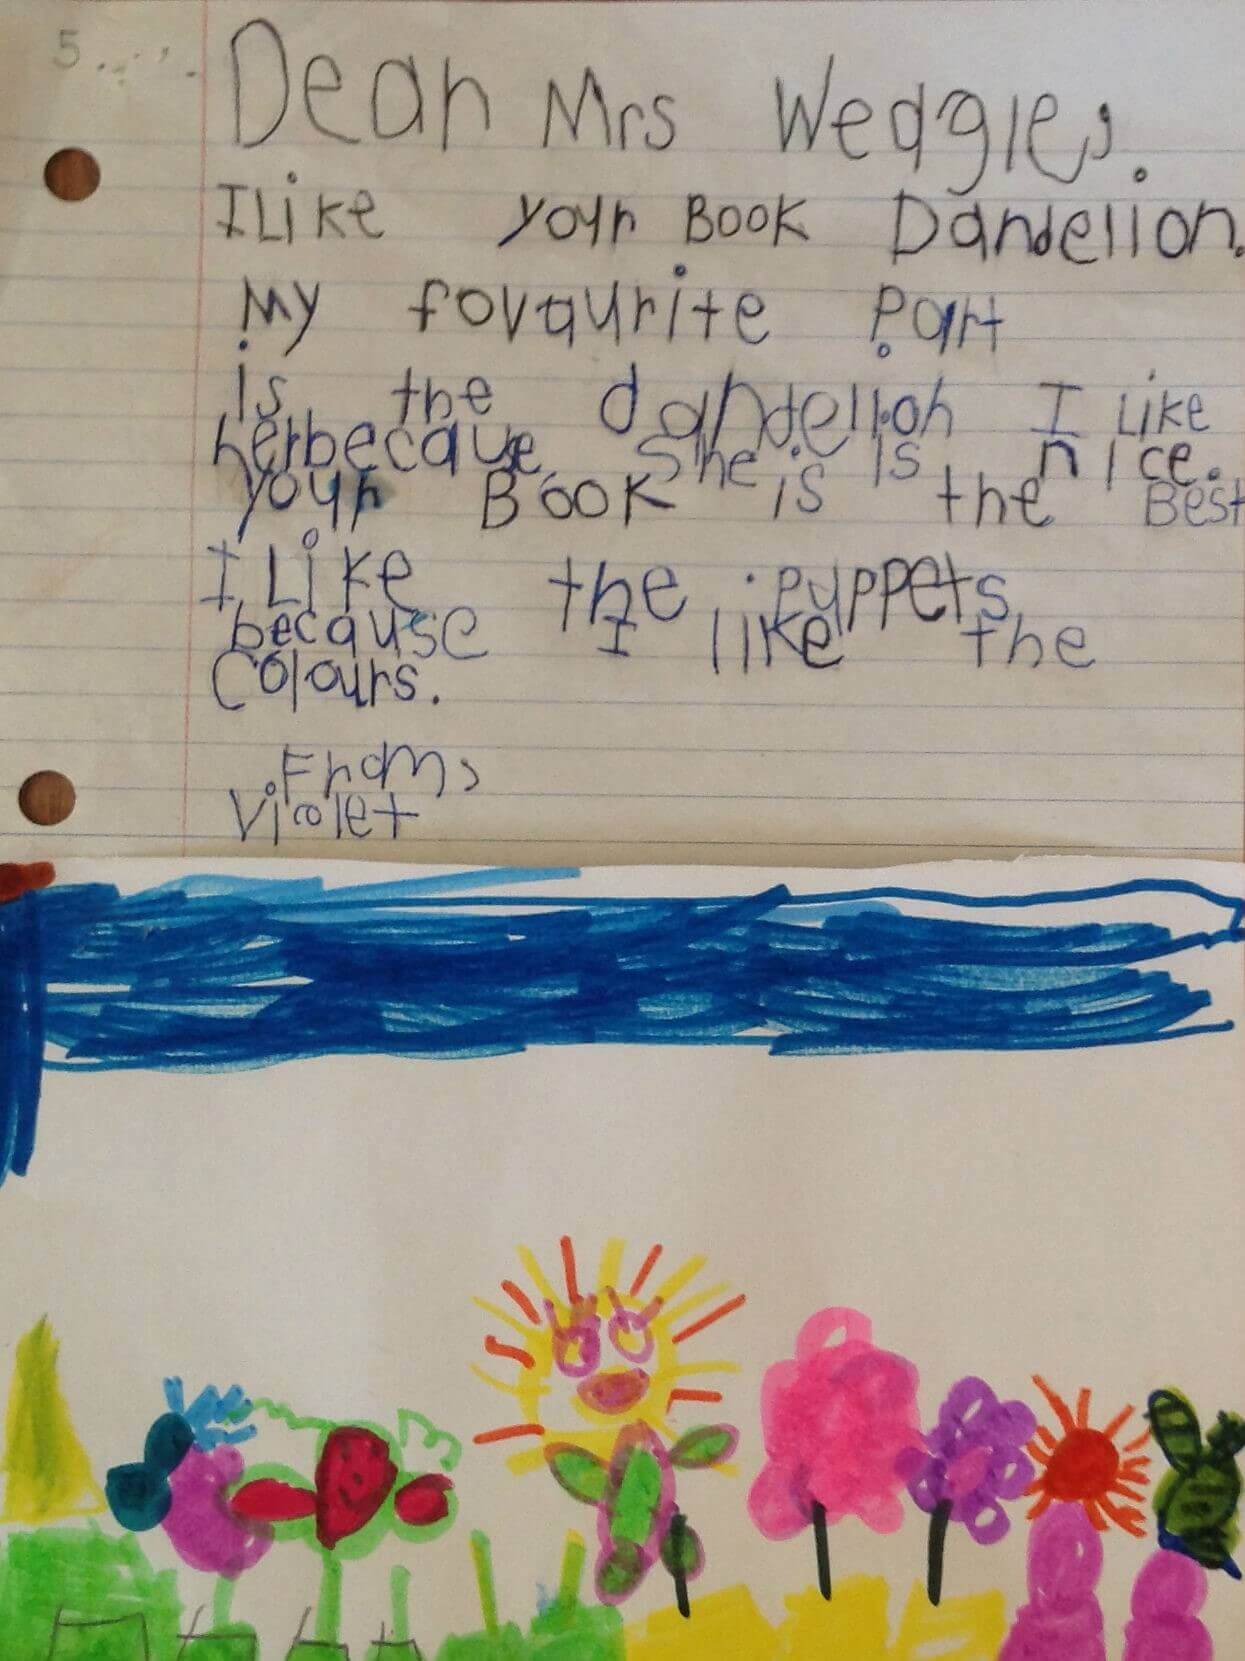 Dear Mrs Wedgles.
I Like your Book Dandelion.
My fovaurite part
is the dandelion I Like
herbecause She is is nice.
your Book is the Best
I Like the puppets
because I like the
Colours.
From,
Violet